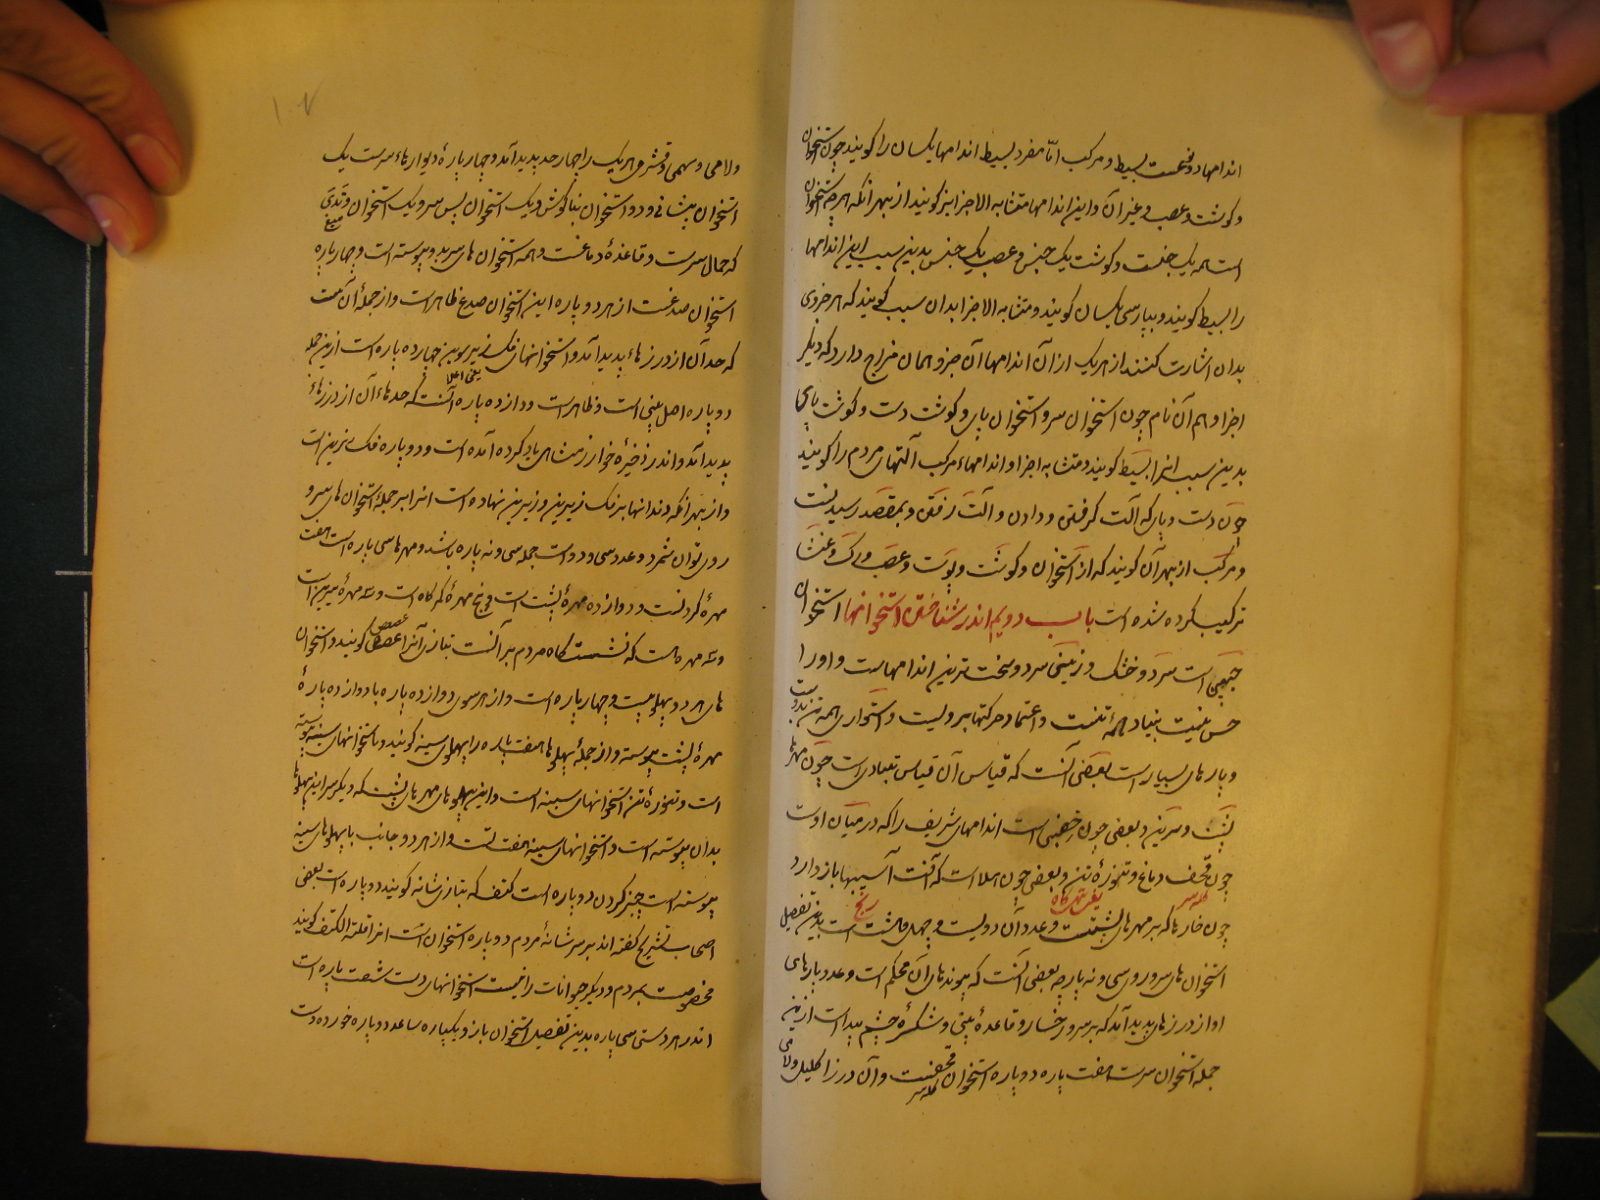 اندامها دو نوعست بسیط و مرکب امّا مفرد بسیط اندامها یکسان را کویند چون استخوان
و کوشت و عصب و غیر آن و این اندامها متشابه الاجزا نیز کویند از بهر آنکه هر جزو استخوان
است همه یک جنست و کوشت یک جنس و عصب یک جنس بدین سبب این اندامها
را بسیط کویند و بپارسی یکسان کویند و متشابه الاجزا بدان سبب کویند که هر جزوی
بدان اشارت کنند از هر یک از آن اندامها آن جزو همان مزاج دارد که دیکر
اجزا و هم آن نام چون استخوان سر و استخوان پای و کوشت دست و کوشت پای
بدین سبب انرا بسیط کویند و متشابه اجزا و اندامهاء مرکب آلتهای مردم را کویند
چون دست و پای که آلت کرفتن و دادن و آلت رفتن و بمقصد رسیدنست
و مرکب از بهر آن کویند که از استخوان و کوشت و پوست و عصب و رک و غشا
ترکیب کرده شده است باب دویم اندر شناختن استخوانها استخوان
جسمی است سرد و خشک و زمینی سرد و سخت ترین اندامهاست و او را
حس نیست بنیاد همهٔ تنست و اعتماد حرکتها برویست و استواری همه تن بدوست
و پارهای بسیار است بعضی آنست که قیاس آن قیاس بنیادی است چون مهرهاء
پشت و سرین و بعضی چون است اندامهای شریف را که در میان اوست
چون قحف دماغ و تنورهٔ تن و بعضی چون سلاحست که آفت آسیبها باز دارد
کله سر یعنی تهیکاه رنج
چون خارها که بر مهرهای پشتست و عدد آن دویست و چهل و هشت است بدین تفصیل
استخوان های سر و روی سی و نه پاره بعضی آنست که پیوندهای آن محکم است و عدد پارهای
او از درزهای پدید آمد که بر سر و رخسار و قاعدهٔ بینی و چشم پیداست ازین
جمله استخوان سرست هفت پاره دو پاره استخوان قحفست و آن درز اکلیلی و لامی
کله سر
ولامی و سهمی و قشری هر یک را چهار حد پدید آمد و چهار پارهٔ دیوارهاء سرست یک
استخوان پیشانی و دو استخوان بناکوش و یک استخوان پس سر و یک استخوان وتدی
میخ
که حمال سرست و قاعدهٔ دماغست و همه استخوان های سر بدو پیوسته است و چهار پاره
استخوان صدغست از هر دو پاره این استخوان صدغ ظاهر است و از جملهٔ آن نیست
که حد آن از درزهاء پدید آمد و استخوانهای فک زبرین چهارده پاره است ازین جمله
یعنی اعلا
دو پاره اصل بینی است و ظاهر است و دوازده پاره آنست که حدهاء آن از درزهاء
پدید آمد و اندر ذخیرهٔ خوارزمشاهی یاد کرده آمده است و دو پاره فک زیرین است
و از بهر آنکه دندانها بر فک زبرین و زیرین نهاده است انرا بر جملهٔ استخوان های سر و
روی توان شمرد و عدد سی و دو است جمله سی و نه پاره باشد و مهرها سی پاره است هفت
مهرهٔ کردنست و دوازده مهرهٔ پشت است و پنج مهرهٔ کمرکاه است و سه مهرهٔ سرین است
عصعص
و سه مهره است که نشستکاه مردم بر آنست بتازی آنرا عصعص کویند و استخوان
های هر دو پهلو بیست و چهار پاره است و از هر سوی دوازده پاره با دوازده پارهٔ
مهرهٔ پشت پیوسته و از جملهٔ پهلوها هفت پاره را پهلوی سینه کویند و با استخوانهای سینه پیوسته
است و تنورهٔ تن استخوانهای سینه است و این پهلوهای مهرهای پشت که دیکر سر این پهلوها
بدان پیوسته است و استخوانهای سینه هفت است و از هر دو جانب با پهلوهای سینه
پیوسته است چنبر کردن دو پاره است کتف که بتازی شانه کویند دو پاره است بعضی
اصحاب تشریح کفته اند بر سر شانهٔ مردم دو پاره استخوان است انرا قلة الکتف کویند
مخصوصست بمردم و دیکر حیوانات را نیست استخوانهای دست شصت پاره است
اندر هر دستی سی پاره بدین تفصیل استخوان بازو یکپاره ساعد دو پاره خورده دست